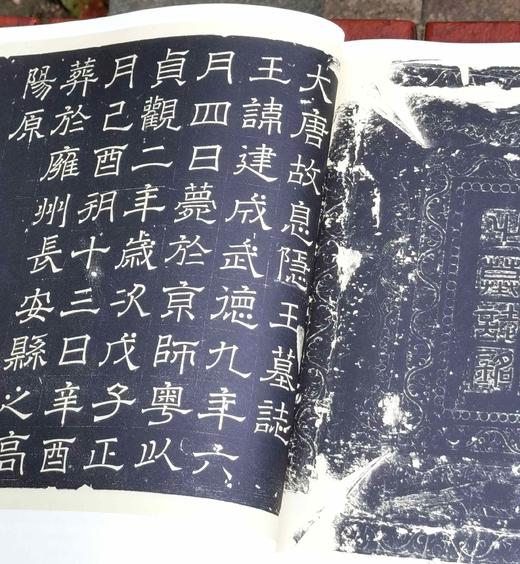 大唐故息隱王墓誌
王諱建成武德九年六
月四日薨於京師粵以
貞觀二年歲次戊子正
月己酉朔十三日辛酉
葬於雍州長安縣之高
陽原
墓誌銘